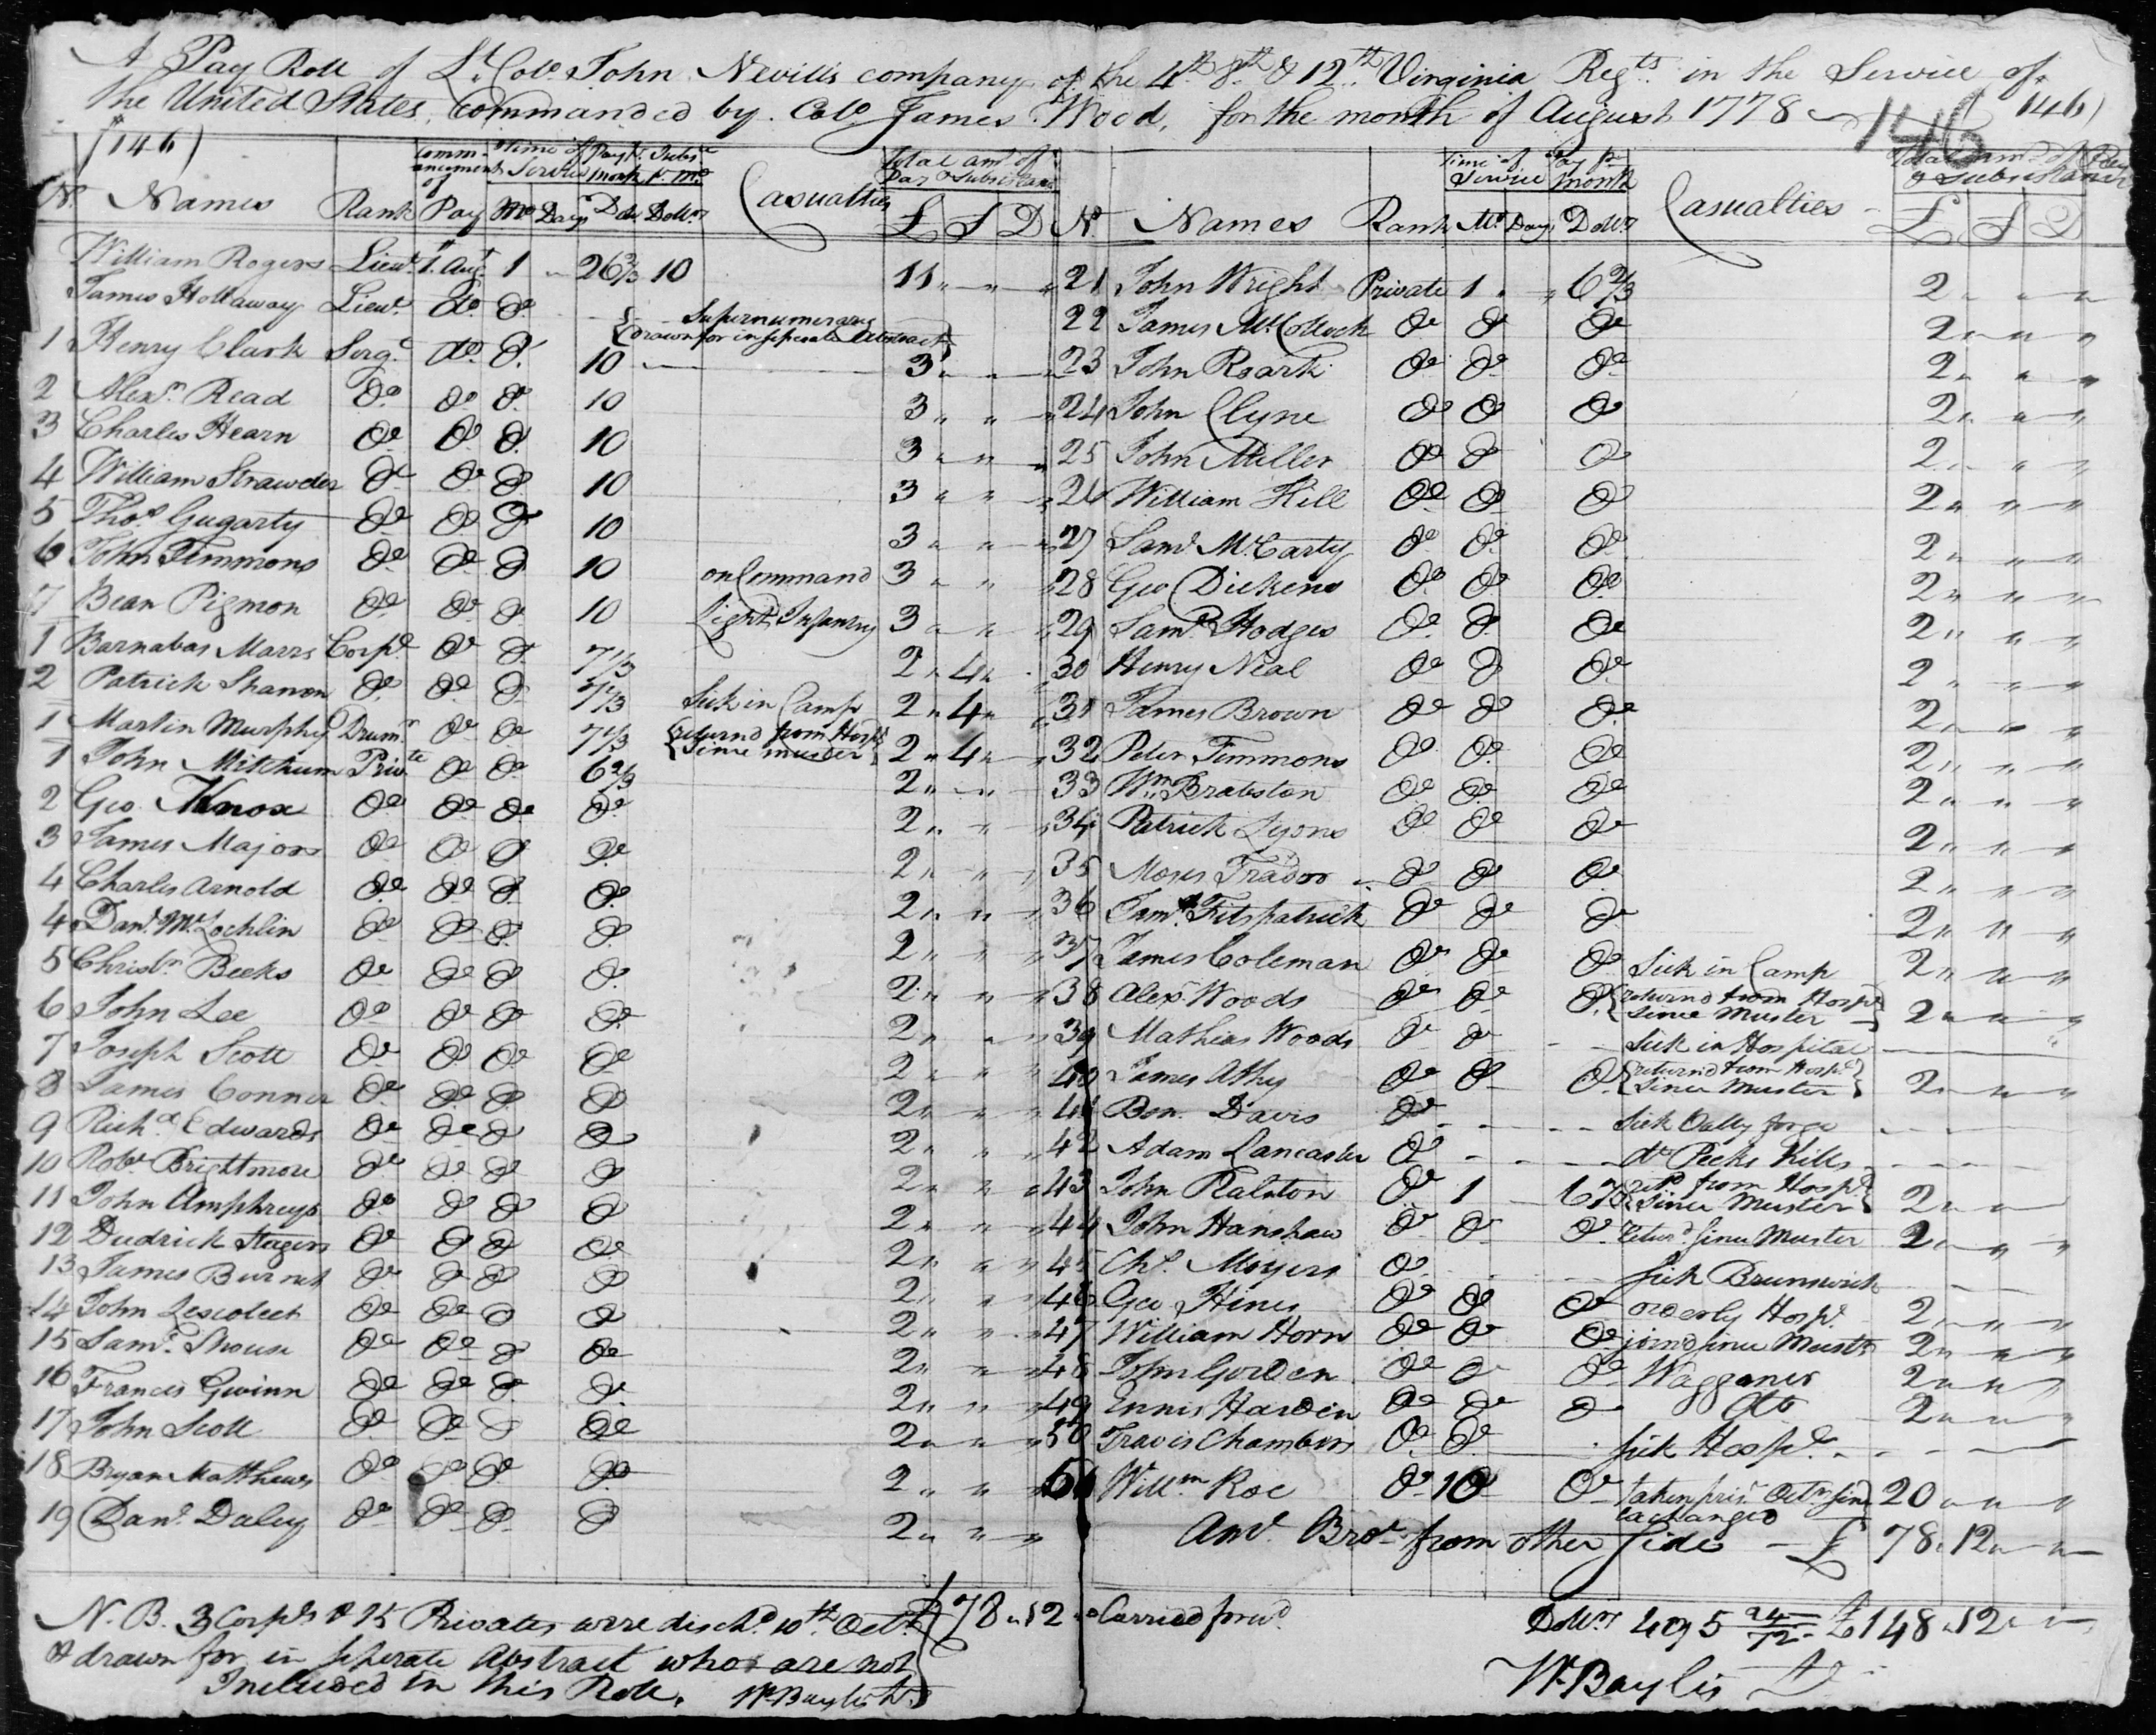 A Pay Roll of Lt. Colo. John Nevill's company of the 4th 8th & 12th Virginia Regts in the Service of
the United States, Commanded by Colo. James Wood, for the month of August 1778
146
(146) 146)
No. Names Rank Commencement of Pay time of Service Mo Days Pay pr. month Dols Subs. pr. Mo. Dollrs Casualties Total amt. of Pay & Subsistance £ S D
William Rogers Lieut. 1st Augt 1 " 26 2/3 10 11 " "
James Hollaway Lieut. do do { Supernumerary
drawn for in seperate Abstract }
1 Henry Clark Sergt. do do 10 3 " "
2 Alexr. Read do do do 10 3 " "
3 Charles Hearn do do do 10 3 " "
4 William Strawder do do do 10 3 " "
5 Thos Gugarty do do do 10 3 " "
6 John Timmons do do do 10 on Command 3 " "
7 Bean Pigmon do do do 10 Light Infantry 3 " "
1 Barnabas Marrs Corpl. do do 7 1/3 2 " 4 "
2 Patrick Shanon do do do 7 1/3 Sick in Camp 2 " 4 "
1 Martin Murphy Drumr do do 7 1/3 {returnd from Hospl
Since muster} 2 " 4 "
1 John Mitchum Privte do do 6 2/3 2 " "
2 Geo. Knox do do do do 2 " "
3 James Majors do do do do 2 " "
4 Charles Arnold do do do do 2 " "
4 Danl. McLochlin do do do do 2 " "
5 Christr. Beeks do do do do 2 " "
6 John Lee do do do do 2 " "
7 Joseph Scott do do do do 2 " "
8 James Conner do do do do 2 " "
9 Richd. Edwards do do do do 2 " "
10 Robt. Brightmore do do do do 2 " "
11 John Umphreys do do do do 2 " "
12 Dedrick Stagers do do do do 2 " "
13 James Burnet do do do do 2 " "
14 John Lescoleet do do do do 2 " "
15 Saml. Shouse do do do do 2 " "
16 Francis Gwinn do do do do 2 " "
17 John Scott do do do do 2 " "
18 Bryan Matthews do do do do 2 " "
19 Danl. Daley do do do do 2 " "
£ 78 " 12 " Carried forwd.
N.B. 3 Corpls & 15 Privates were dischd. 10th Octr.
& drawn for in seperate Abstract who are not
Included in this Roll. Wm Baylis Lt.
No. Names Rank Time of Service Mo Days Pay pr month Dollrs Casualties Total amt. of Pay & Subsistance £ S D
21 John Wright Private 1 " " 6 2/3 2 " " "
22 James McColloch do do do 2 " " "
23 John Roark do do do 2 " " "
24 John Clyne do do do 2 " " "
25 John Miller do do do 2 " " "
26 William Hill do do do 2 " " "
27 Saml McCarty do do do 2 " " "
28 Geo Dickens do do do 2 " " "
29 Saml. Hodges do do do 2 " " "
30 Henry Neal do do do 2 " " "
31 James Brown do do do 2 " " "
32 Peter Timmons do do do 2 " " "
33 Wm. Brabston do do do 2 " " "
34 Patrick Lyons do do do 2 " " "
35 Moses Trador do do do 2 " " "
36 Fitspatrick do do do 2 " " "
37 James Coleman do do do Sick in Camp 2 " " "
38 Alexr. Woods do do do {returnd from Hospl
since Muster} 2 " " "
39 Mathias Woods do do Sick in Hospital
40 James Athy do do do {returnd from Hospl
since Muster} 2 " " "
41 Ben. Davis do Sick Vally forge
42 Adam Lancaster do do Peeks Kills
43 John Ralston do 1 6 2/3 {retd from Hospl.
since Muster} 2 " "
44 John Hanshaw do do do Returd. since Muster 2 " " "
45 Chs. Moyers do Sick Brunswick
46 Geo Hines do do do orderly Hospl. 2 " " "
47 William Horn do do do joined since Mustr. 2 " " "
48 John Gorden do do do Waggoner 2 " " "
49 Ennis Harden do do do do 2 " " "
50 Travis Chambers do do Sick Hospl.
51 Willm Roe do 10 do taken prisr. Octr.
exchanged 20 " " "
Amt. Brot. from other side £ 78 " 12 " "
Dollrs 495 24/72 £148 " 12 " "
Wm Baylis Lt